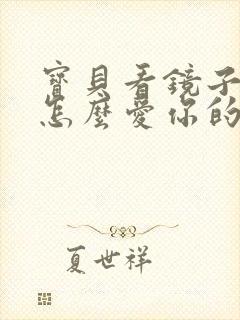 寶貝看鏡子
怎麼愛你的
夏世祥